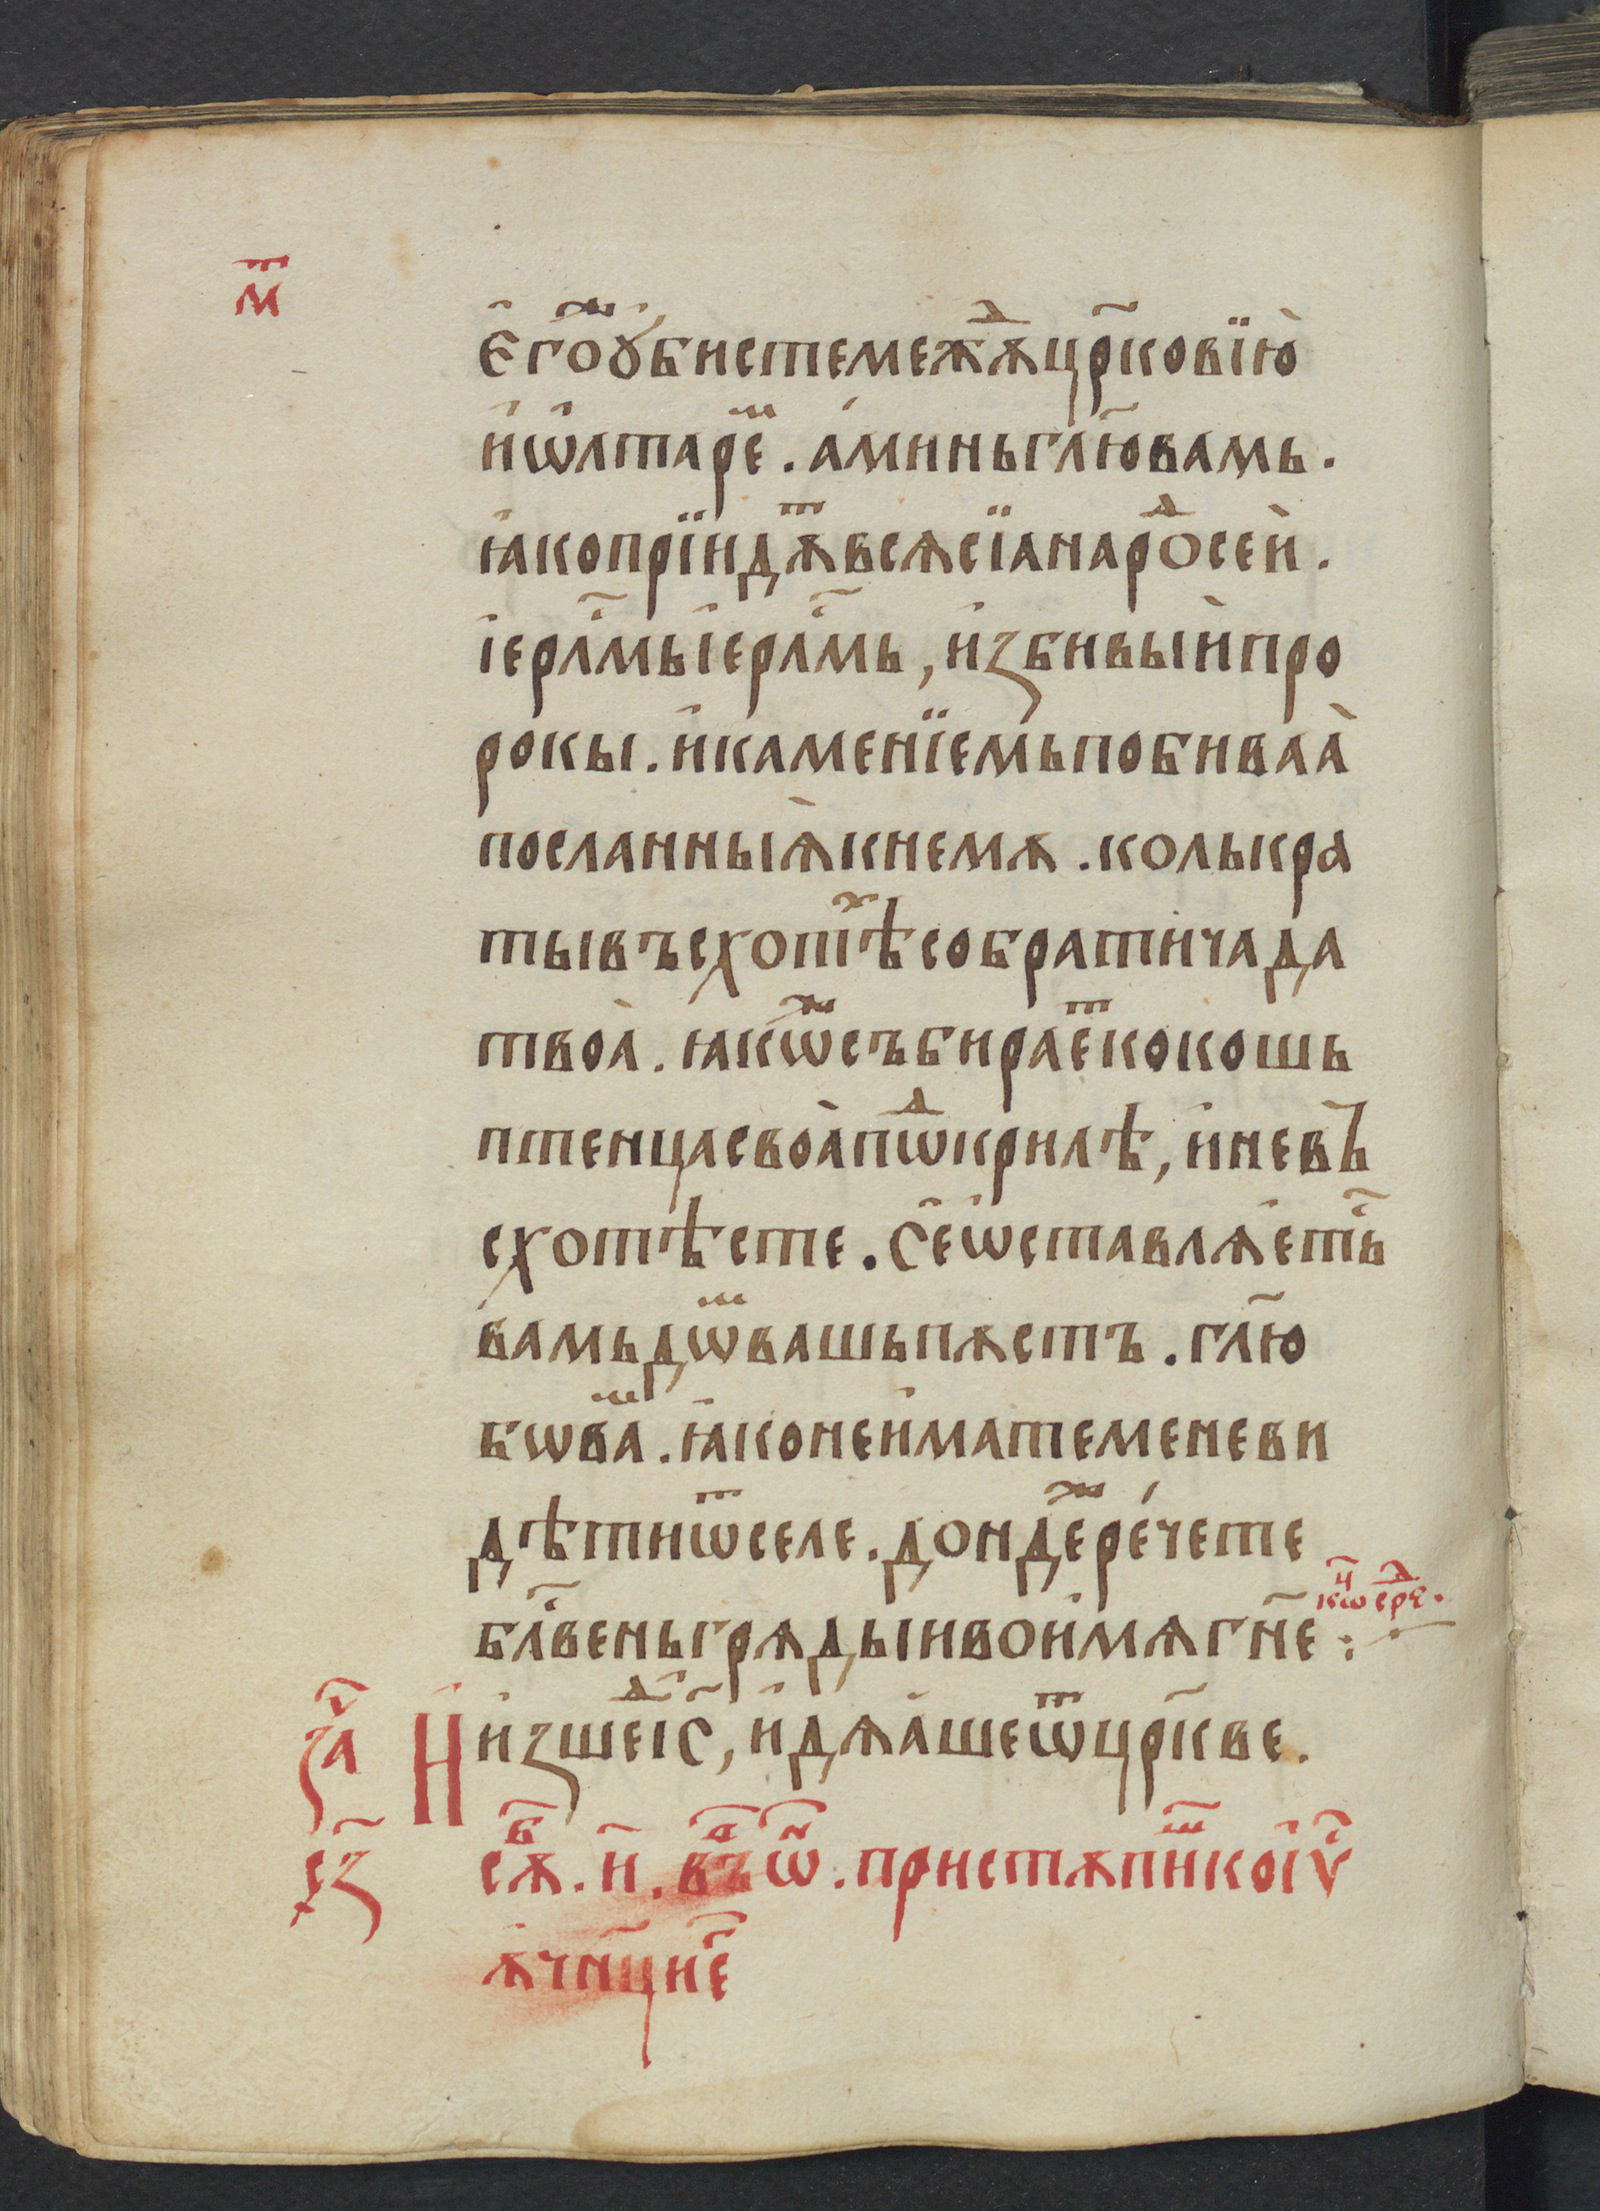 м҃
Єго̑ж ѹ҆бистемеждѫцр҃ковїю̀
и҆ѡ҆лтарє҆м . а҆миньгл҃ювамь .
ꙗ҆копрїидѫтвсѧсїанаро́дсей .
і҆ерл҃мьі҆ерл҃мь , и҆ꙁбивыйпро
рокы . и҆каменїемьпобиваа̀
посланныѧ̀кнемѫ . колькра
тывъсхотѣхсобратичада
твоа̀ . ꙗ҆кѡжсъбирае҆ткокошь
птенцасвоа̀пѡдкрилѣ , и҆невъ
схотѣсте . Се҆ѡ҆ставлѧ҆еть
вамьдѡмвашьпѫстъ . гл҃ю
бѡвам . ꙗ҆конеи҆матеменеви
дѣтиѿселе . дондежре́чете
блв҃еньгрѧдыивои҆мѧгн҃е :
кѡнц сред .
за҃ч И҆ и҆ꙁшедіс҃ , и҆дѧ҆шеѿцр҃кве .
сꙁ҃ сѫб . и҃ . въдѡн . пристѫпишкоі҆ѵ҃
ѫ҆ч҃ницие҆г